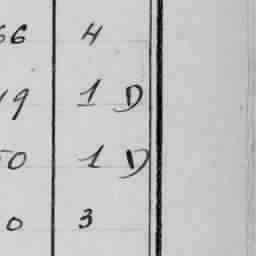 66 4
19 1 D
50 1 D
0 3